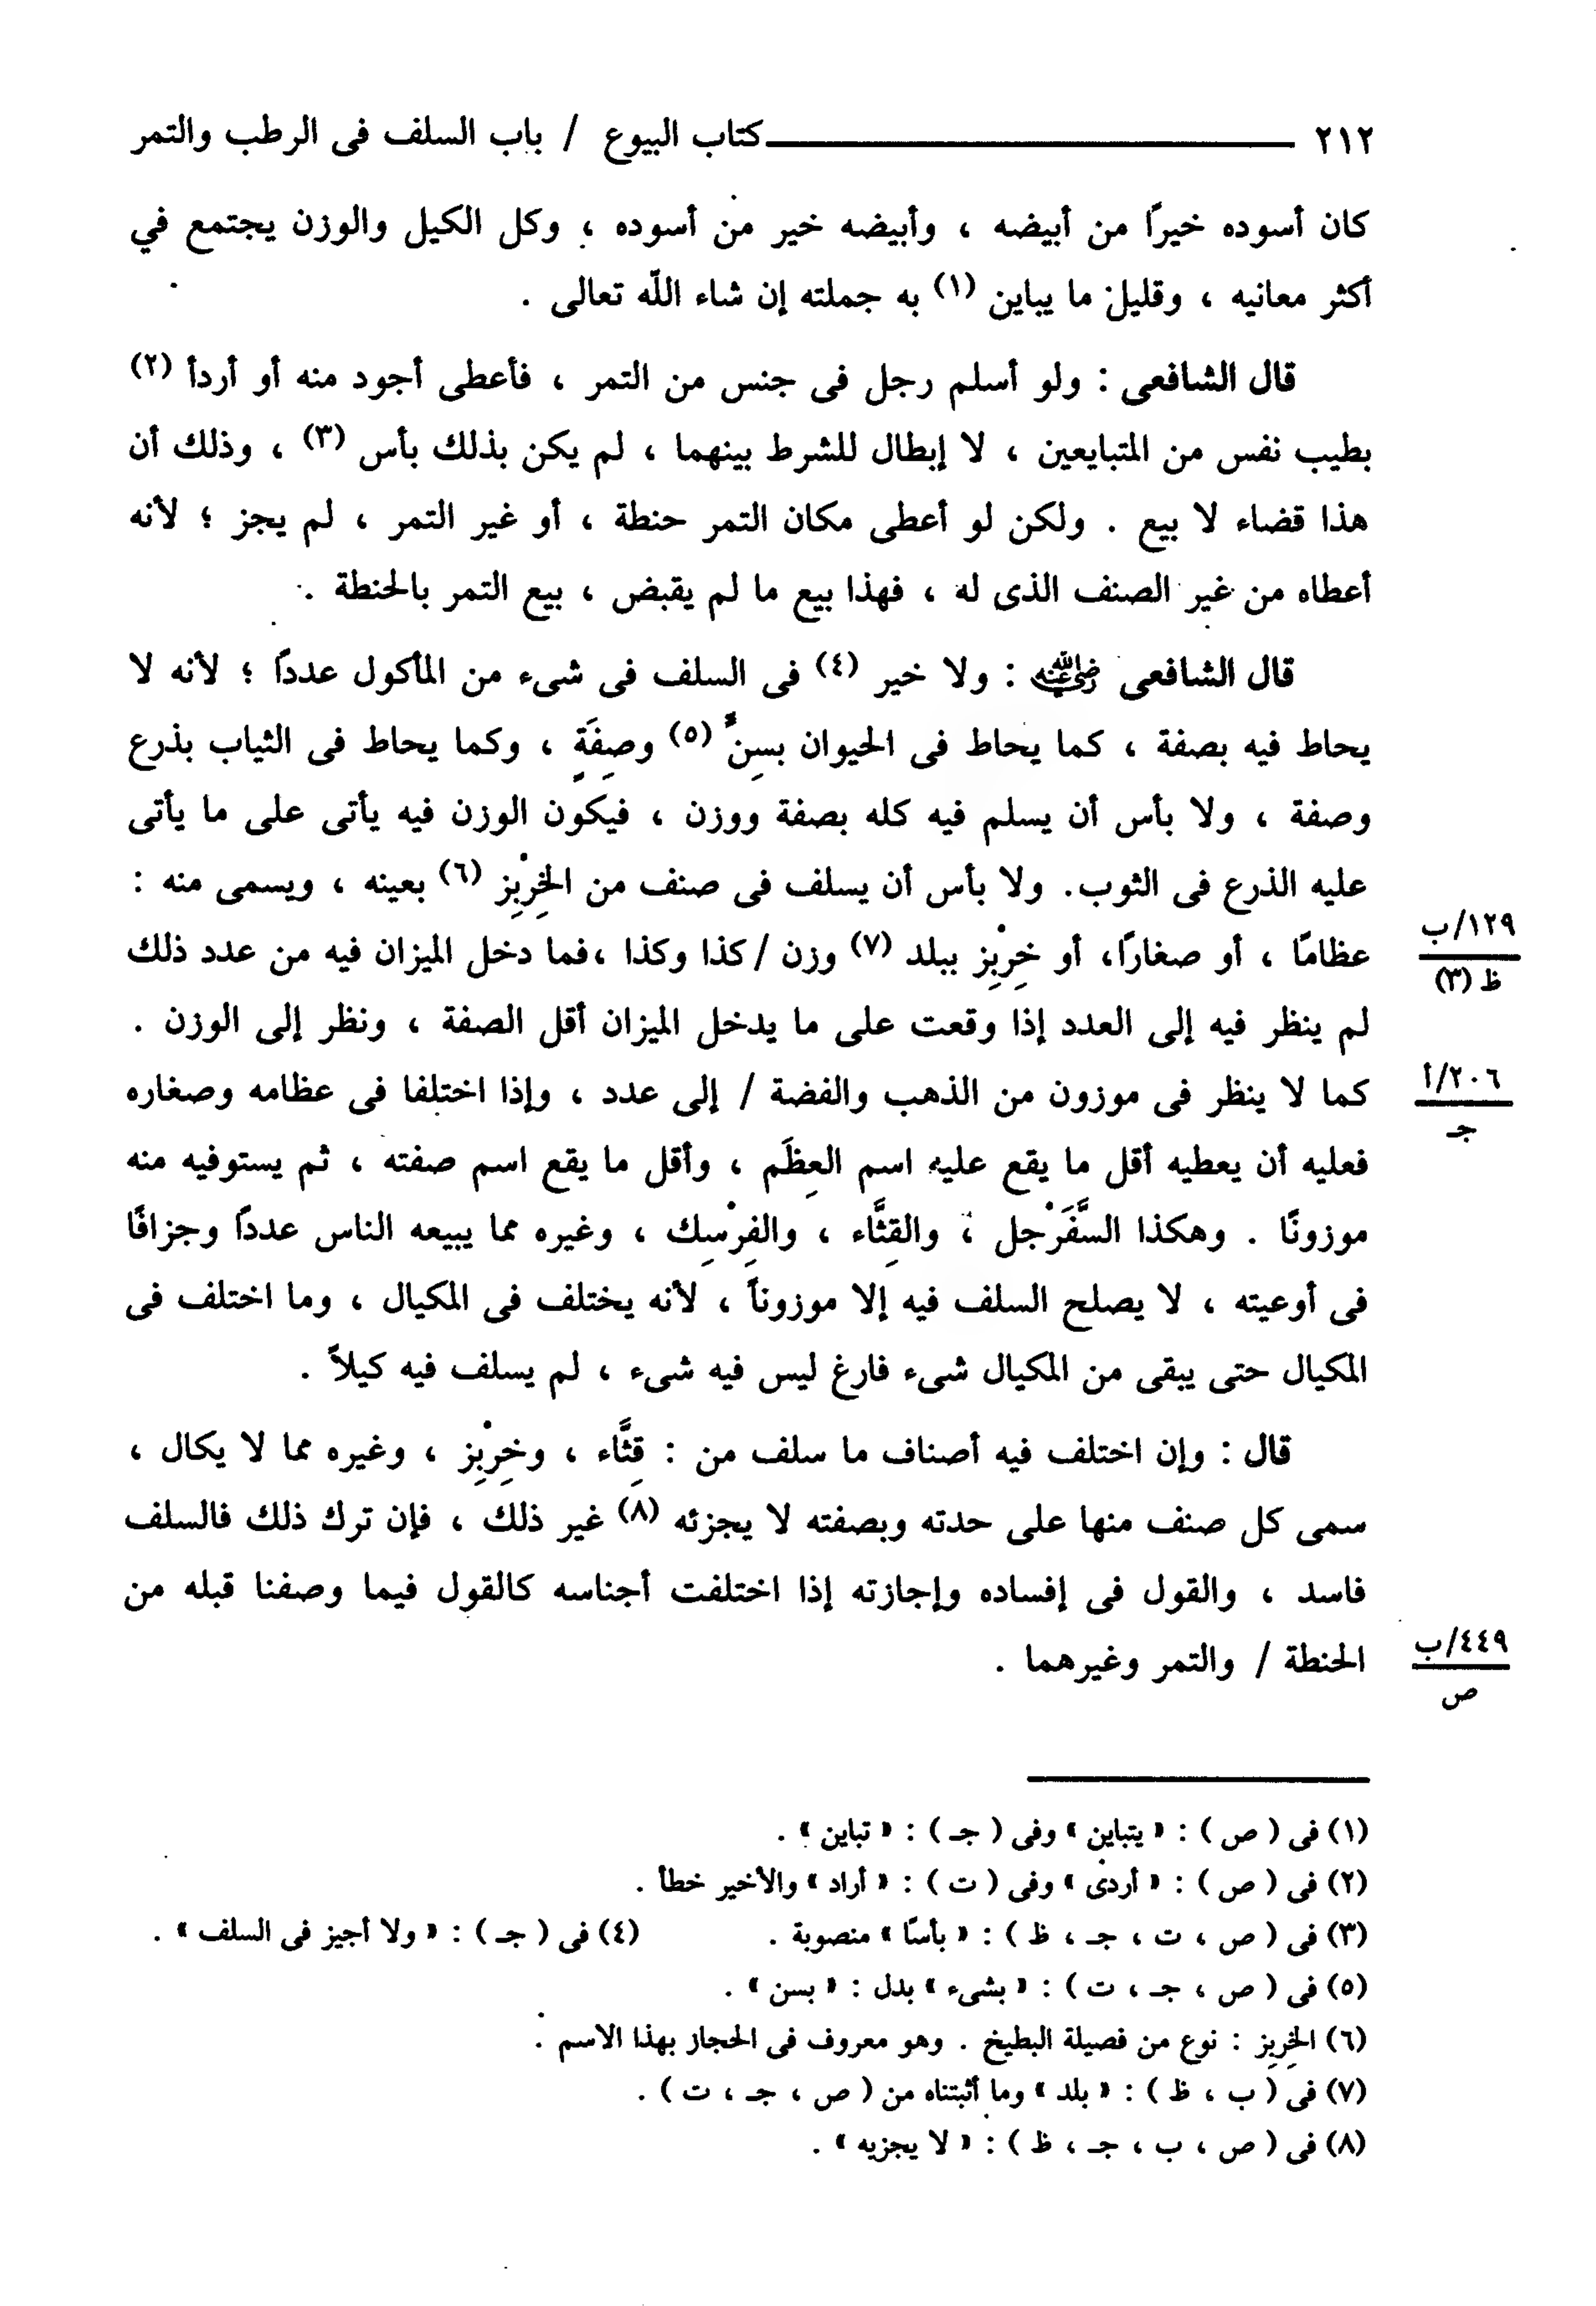 ٢١٢ ــــــــــــــــــــ كتاب البيوع / باب السلف فى الرطب والتمر
كان أسوده خيراً من أبيضه ، وأبيضه خير من أسوده ، وكل الكيل والوزن يجتمع في
أكثر معانيه ، وقليل ما يباين (١) به جملته إن شاء اللّه تعالى .
قال الشافعى : ولو أسلم رجل فى جنس من التمر ، فأعطى أجود منه أو أردأ (٢)
بطيب نفس من المتبايعين ، لا إبطال للشرط بينهما ، لم يكن بذلك بأس (٣) ، وذلك أن
هذا قضاء لا بيع . ولكن لو أعطى مكان التمر حنطة ، أو غير التمر ، لم يجز ؛ لأنه
أعطاه من غير الصنف الذى له ، فهذا بيع ما لم يقبض ، بيع التمر بالحنطة .
قال الشافعى رضي الله عنه : ولا خير (٤) فى السلف فى شىء من المأكول عدداً ؛ لأنه لا
يحاط فيه بصفة ، كما يحاط فى الحيوان بسِنٍّ (٥) وصِفَةٍ ، وكما يحاط فى الثياب بذرع
وصفة ، ولا بأس أن يسلم فيه كله بصفة ووزن ، فيكون الوزن فيه يأتى على ما يأتى
عليه الذرع فى الثوب. ولا بأس أن يسلف فى صنف من الخِرْبِز (٦) بعينه ، ويسمى منه :
عظامًا ، أو صغارًا، أو خِرْبِز ببلد (٧) وزن / كذا وكذا ،فما دخل الميزان فيه من عدد ذلك
١٢٩/ب
ظ (٣)
لم ينظر فيه إلى العدد إذا وقعت على ما يدخل الميزان أقل الصفة ، ونظر إلى الوزن .
كما لا ينظر فى موزون من الذهب والفضة / إلى عدد ، وإذا اختلفا فى عظامه وصغاره
٢٠٦/أ
جـ
فعليه أن يعطيه أقل ما يقع عليه اسم العِظَم ، وأقل ما يقع اسم صفته ، ثم يستوفيه منه
موزونًا . وهكذا السَّفَرْجل ، والقِثَّاء ، والفِرْسِك ، وغيره مما يبيعه الناس عدداً وجزافًا
فى أوعيته ، لا يصلح السلف فيه إلا موزوناً ، لأنه يختلف فى المكيال ، وما اختلف فى
المكيال حتى يبقى من المكيال شىء فارغ ليس فيه شىء ، لم يسلف فيه كيلاً .
قال : وإن اختلف فيه أصناف ما سلف من : قِثَّاء ، وخِرْبِز ، وغيره مما لا يكال ،
سمى كل صنف منها على حدته وبصفته لا يجزئه (٨) غير ذلك ، فإن ترك ذلك فالسلف
فاسد ، والقول فى إفساده وإجازته إذا اختلفت أجناسه كالقول فيما وصفنا قبله من
الحنطة / والتمر وغيرهما .
٤٤٩/ب
ص
(١) فى ( ص ) : « يتباين » وفى ( جـ ) : « تباين » .
(٢) فى ( ص ) : « أردى » وفى ( ت ) : « أراد » والأخير خطأ .
(٣) فى ( ص ، ت ، جـ ، ظ ) : « بأسًا » منصوبة . (٤) فى ( جـ ) : « ولا أجيز فى السلف » .
(٥) فى ( ص ، جـ ، ت ) : « بشىء » بدل : « بسن » .
(٦) الخِرْبِز : نوع من فصيلة البطيخ . وهو معروف فى الحجاز بهذا الاسم .
(٧) فى ( ب ، ظ ) : « بلد » وما أثبتناه من ( ص ، جـ ، ت ) .
(٨) فى ( ص ، ب ، جـ ، ظ ) : « لا يجزيه » .